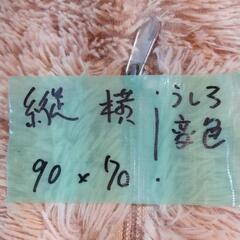 縦 横
90 × 70
うしろ
変色